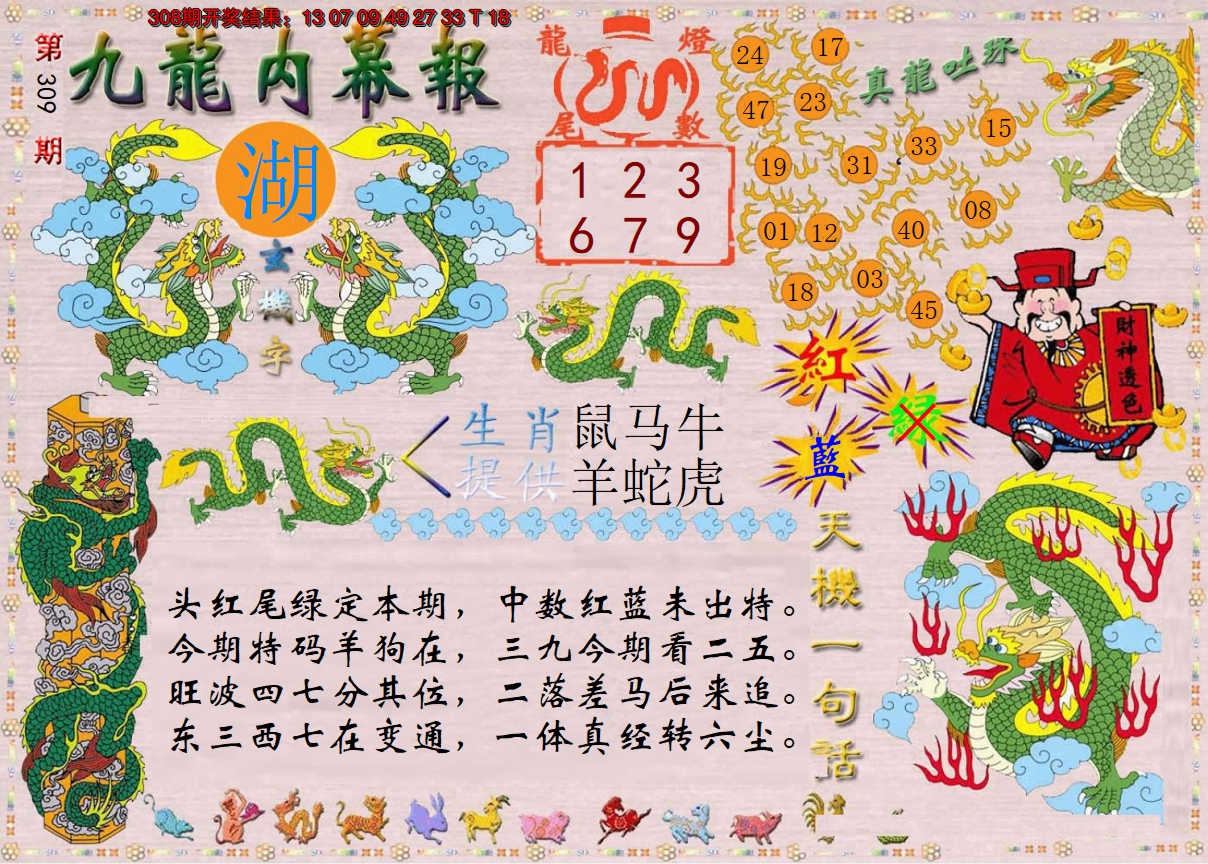 308期开奖结果：13 07 09 49 27 33 T 18
第309期
九龍内幕報
湖
玄機字
龍燈
尾數
1 2 3
6 7 9
真龍吐珠
24
17
47
23
15
33
19
31
08
01
12
40
03
18
45
財神透色
紅
绿
藍
生肖 鼠马牛
提供 羊蛇虎
天機一句話
头红尾绿定本期，中数红蓝未出特。
今期特码羊狗在，三九今期看二五。
旺波四七分其位，二落差马后来追。
东三西七在变通，一体真经转六尘。